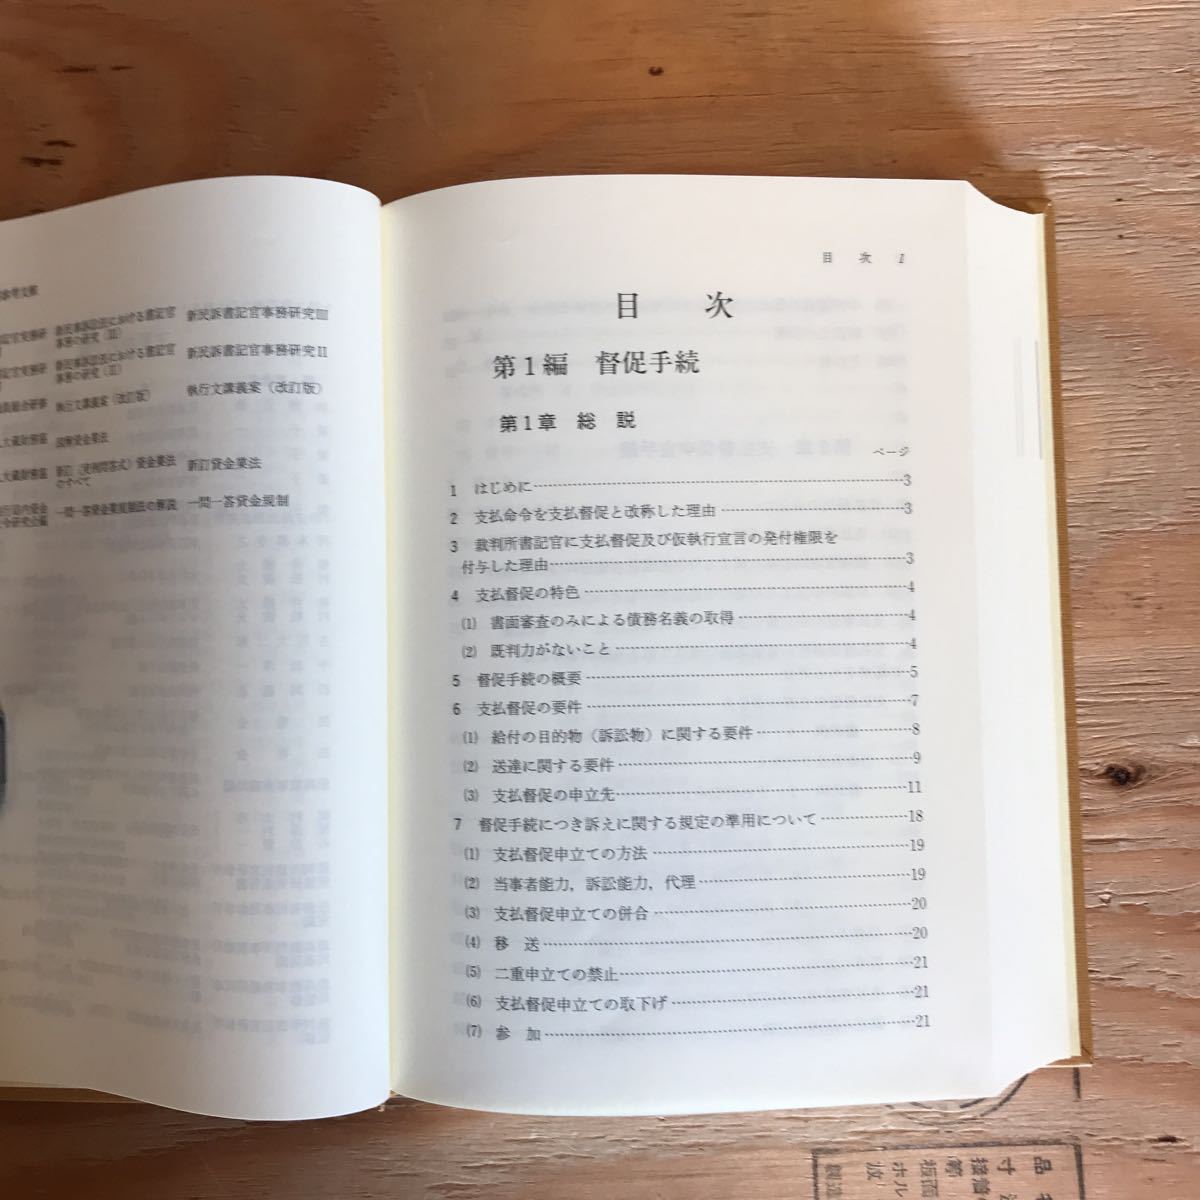 新民事訴訟法における書記官
事務の研究(III)
新民訴書記官事務研究III
新民事訴訟法における書記官
事務の研究(II)
新民訴書記官事務研究II
執行文講義案(改訂版)
執行文講義案(改訂版)
図解貸金業法
新訂貸金業法
のすべて
新訂貸金業法
一問一答貸金業規制法の解説
一問一答貸金規制
目 次 1
目 次
第1編 督促手続
第1章 総 説
ページ
1 はじめに……3
2 支払命令を支払督促と改称した理由……3
3 裁判所書記官に支払督促及び仮執行宣言の発付権限を
付与した理由……3
4 支払督促の特色……4
(1) 書面審査のみによる債務名義の取得……4
(2) 既判力がないこと……4
5 督促手続の概要……5
6 支払督促の要件……7
(1) 給付の目的物(訴訟物)に関する要件……8
(2) 送達に関する要件……9
(3) 支払督促の申立先……11
7 督促手続につき訴えに関する規定の準用について……18
(1) 支払督促申立ての方法……19
(2) 当事者能力,訴訟能力,代理……19
(3) 支払督促申立ての併合……20
(4) 移 送……20
(5) 二重申立ての禁止……21
(6) 支払督促申立ての取下げ……21
(7) 参 加……21